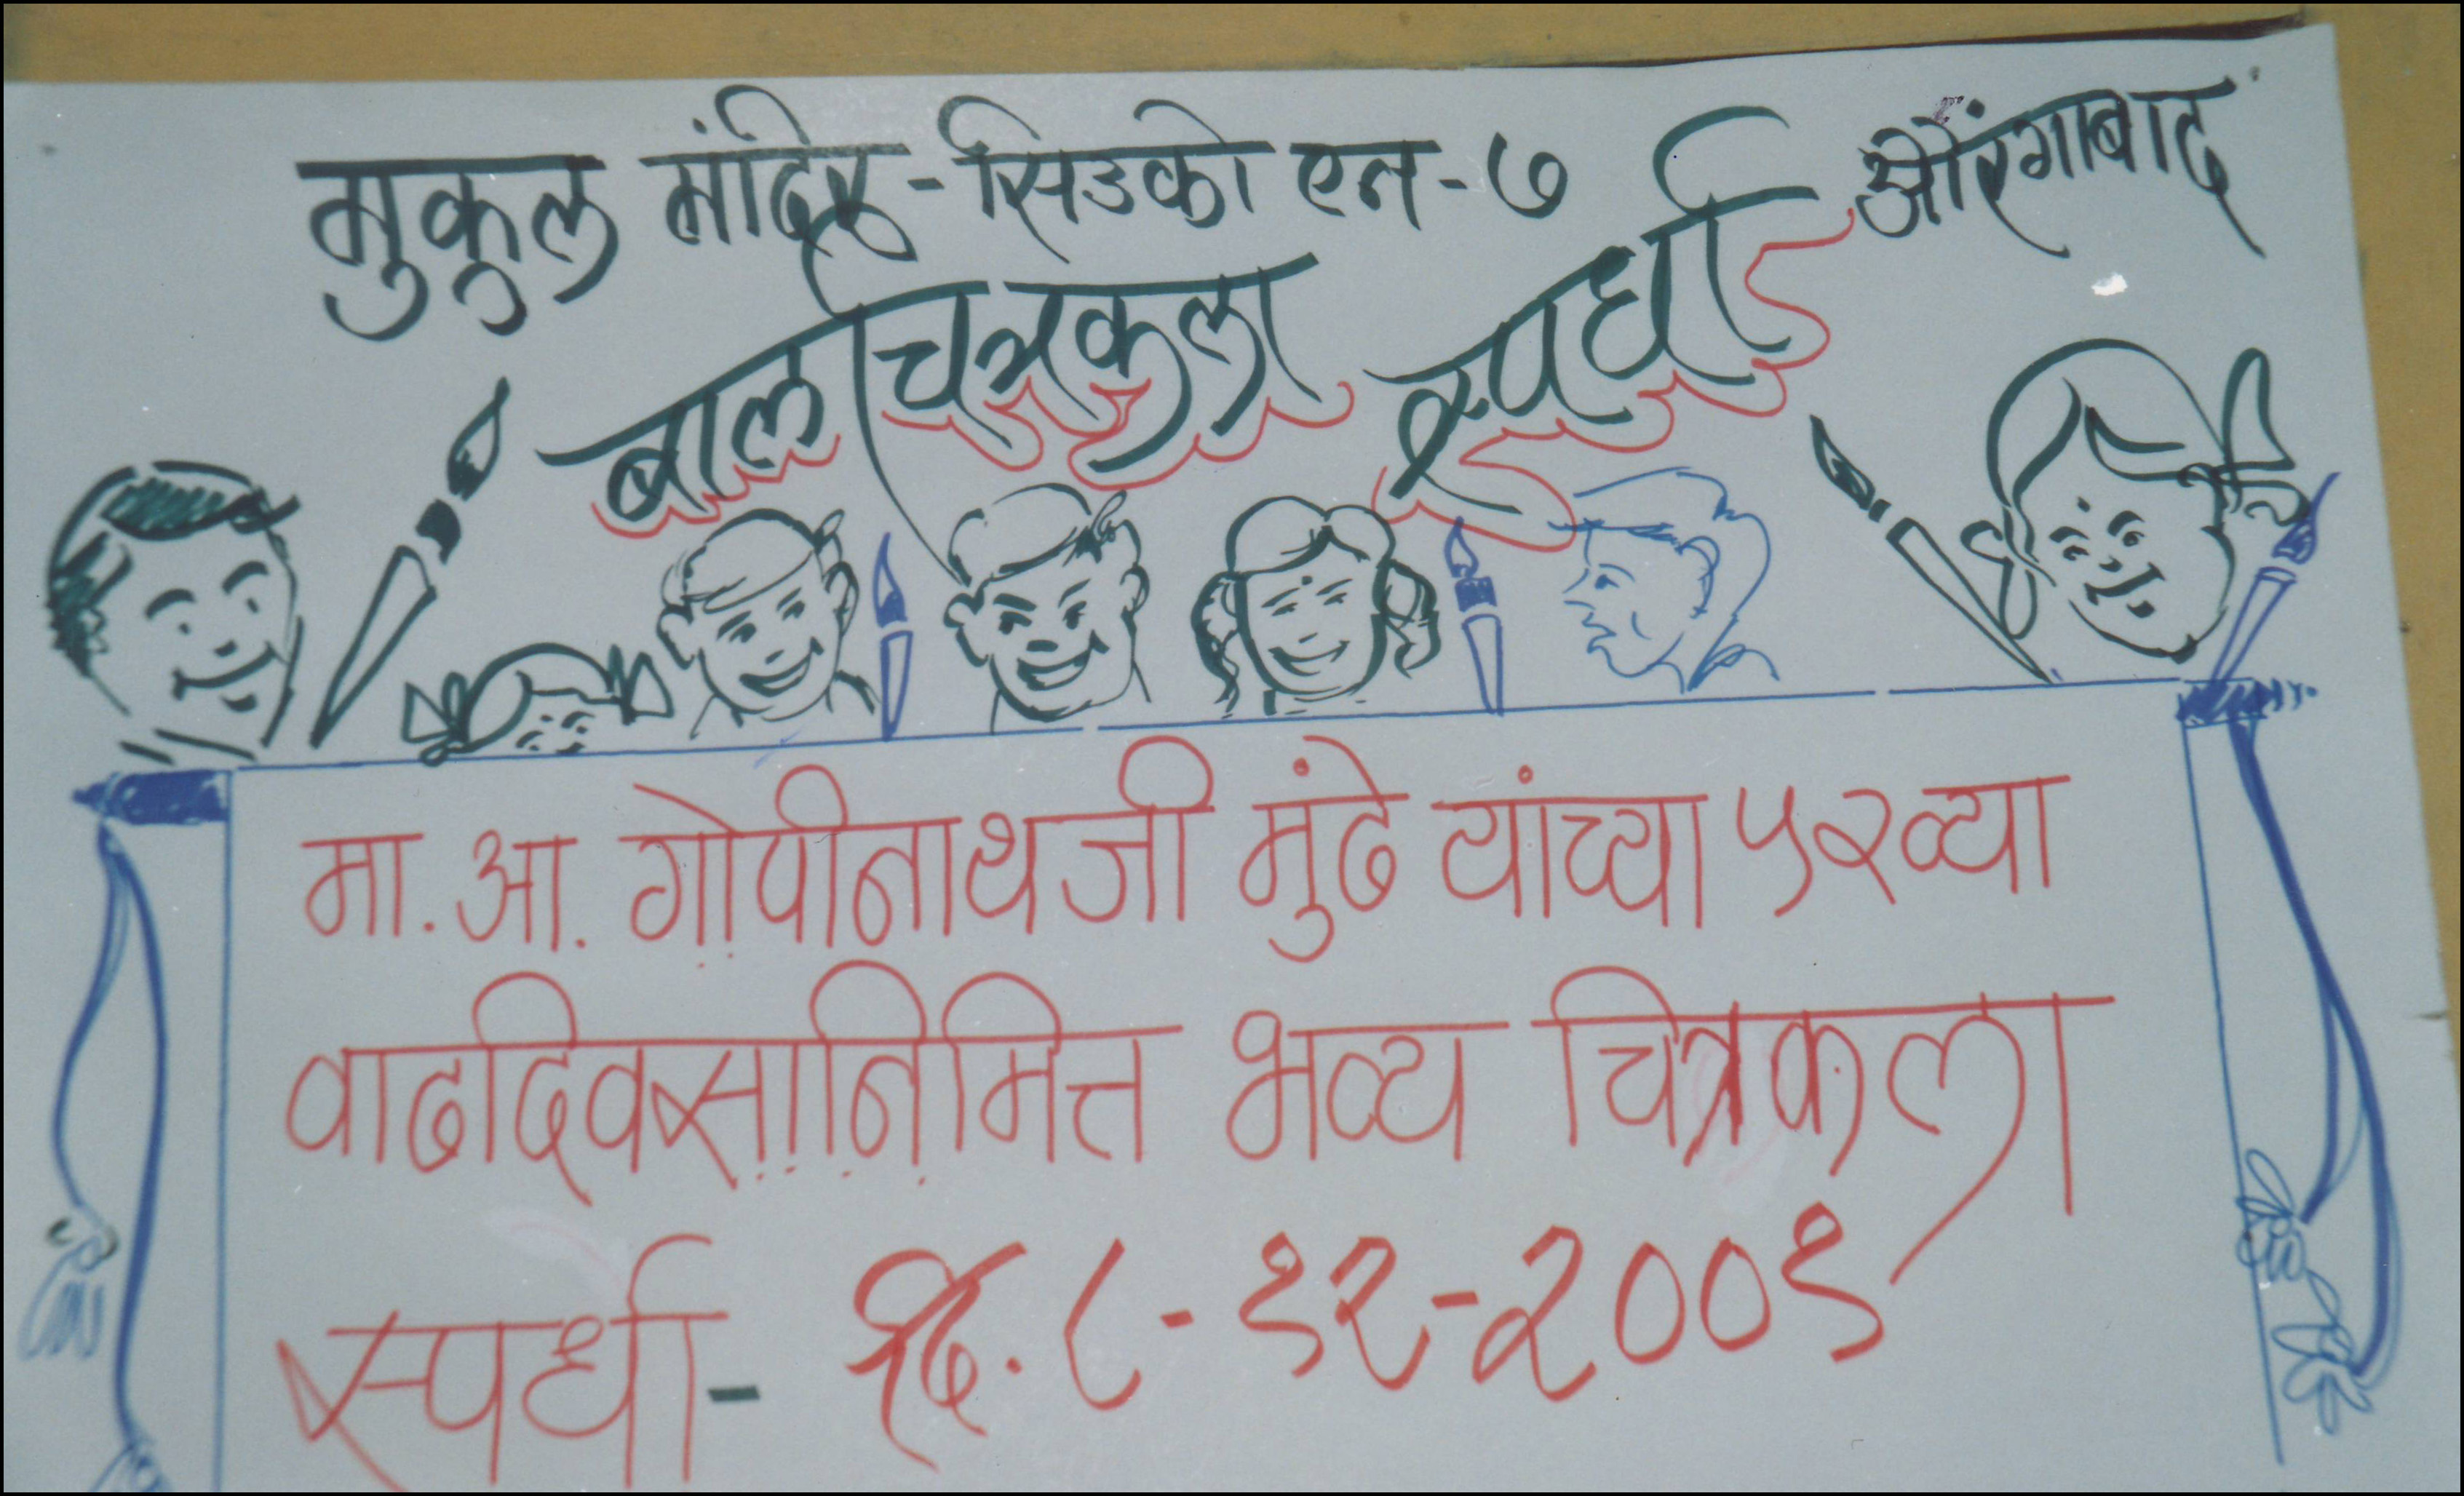 मुकुल मंदिर - सिडको एन - ७ औरंगाबाद
बाल चित्रकला स्पर्धा
मा. आ. गोपीनाथजी मुंढे यांच्या ५२व्या
वाढदिवसानिमित्त भव्य चित्रकला
स्पर्धा - दि. ८ - १२ - २००१